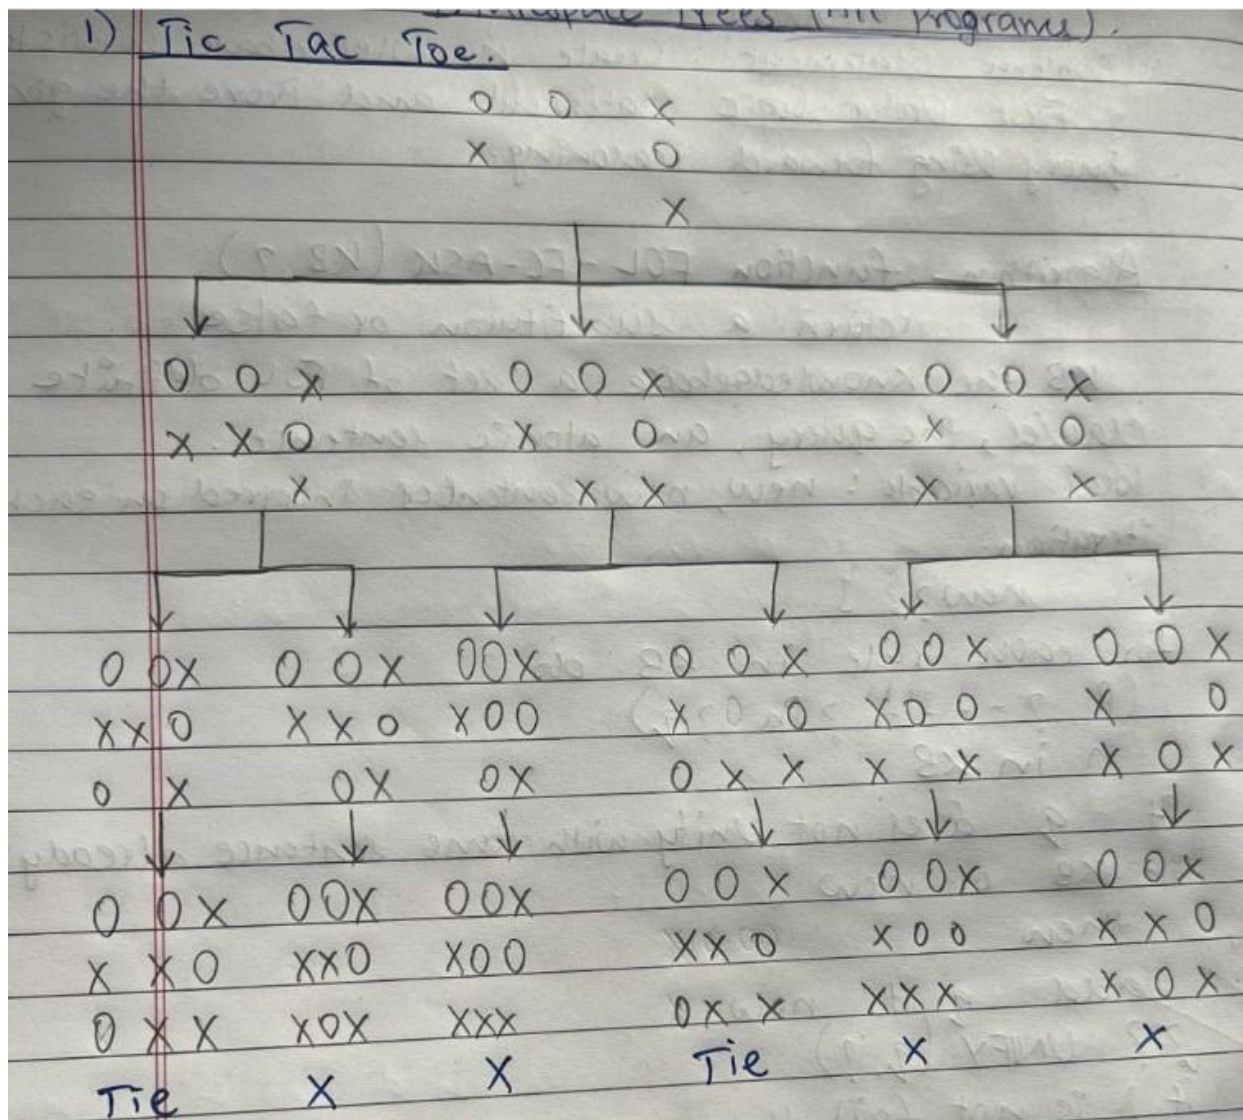 Trees (All Programs).
1) Tic Tac Toe.
O O X
X O
X
O O X O O X O O X
X X O X O X O
X X X X X
O O X O O X O O X O O X O O X O O X
X X O X X O X O O X O X O O X O
O X O X O X O X X X X X O X
O O X O O X O O X O O X O O X O O X
X X O X X O X O O X X O X O O X X O
O X X X O X X X X O X X X X X X O X
Tie X X Tie X X